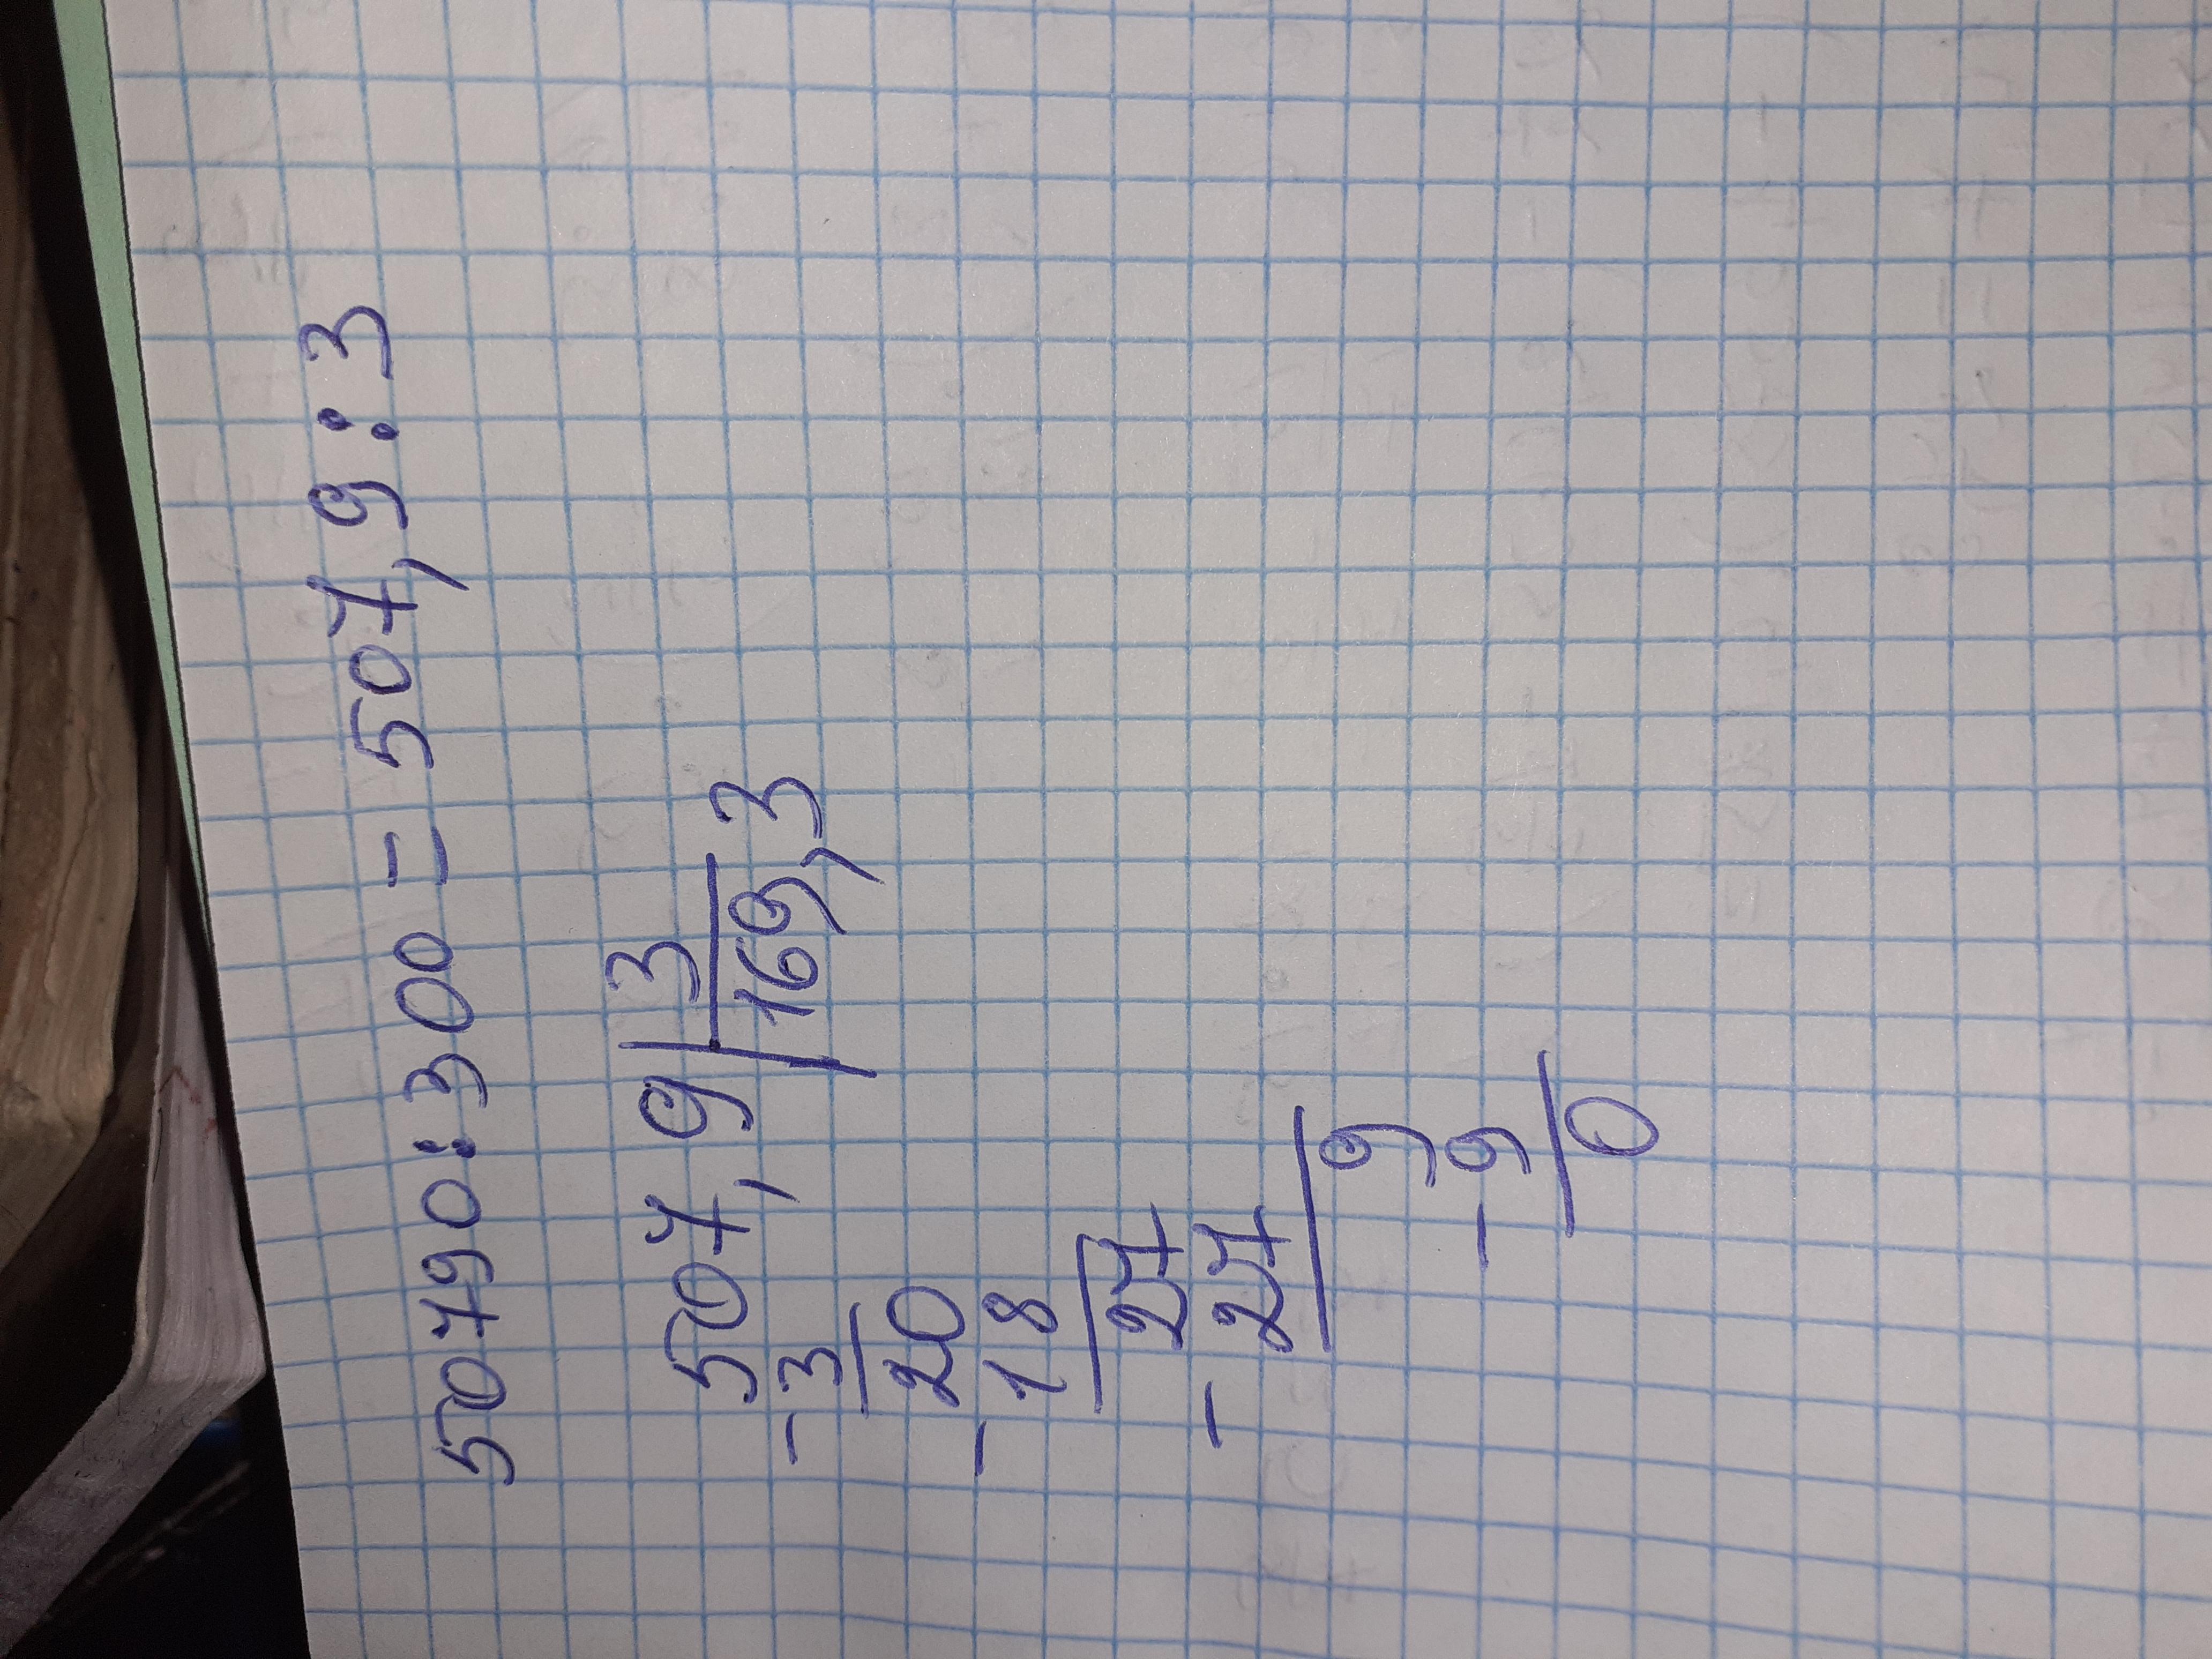 50790:300=507,9:3
507,9|3
-3 169,3
20
-18
27
-27
9
-9
0